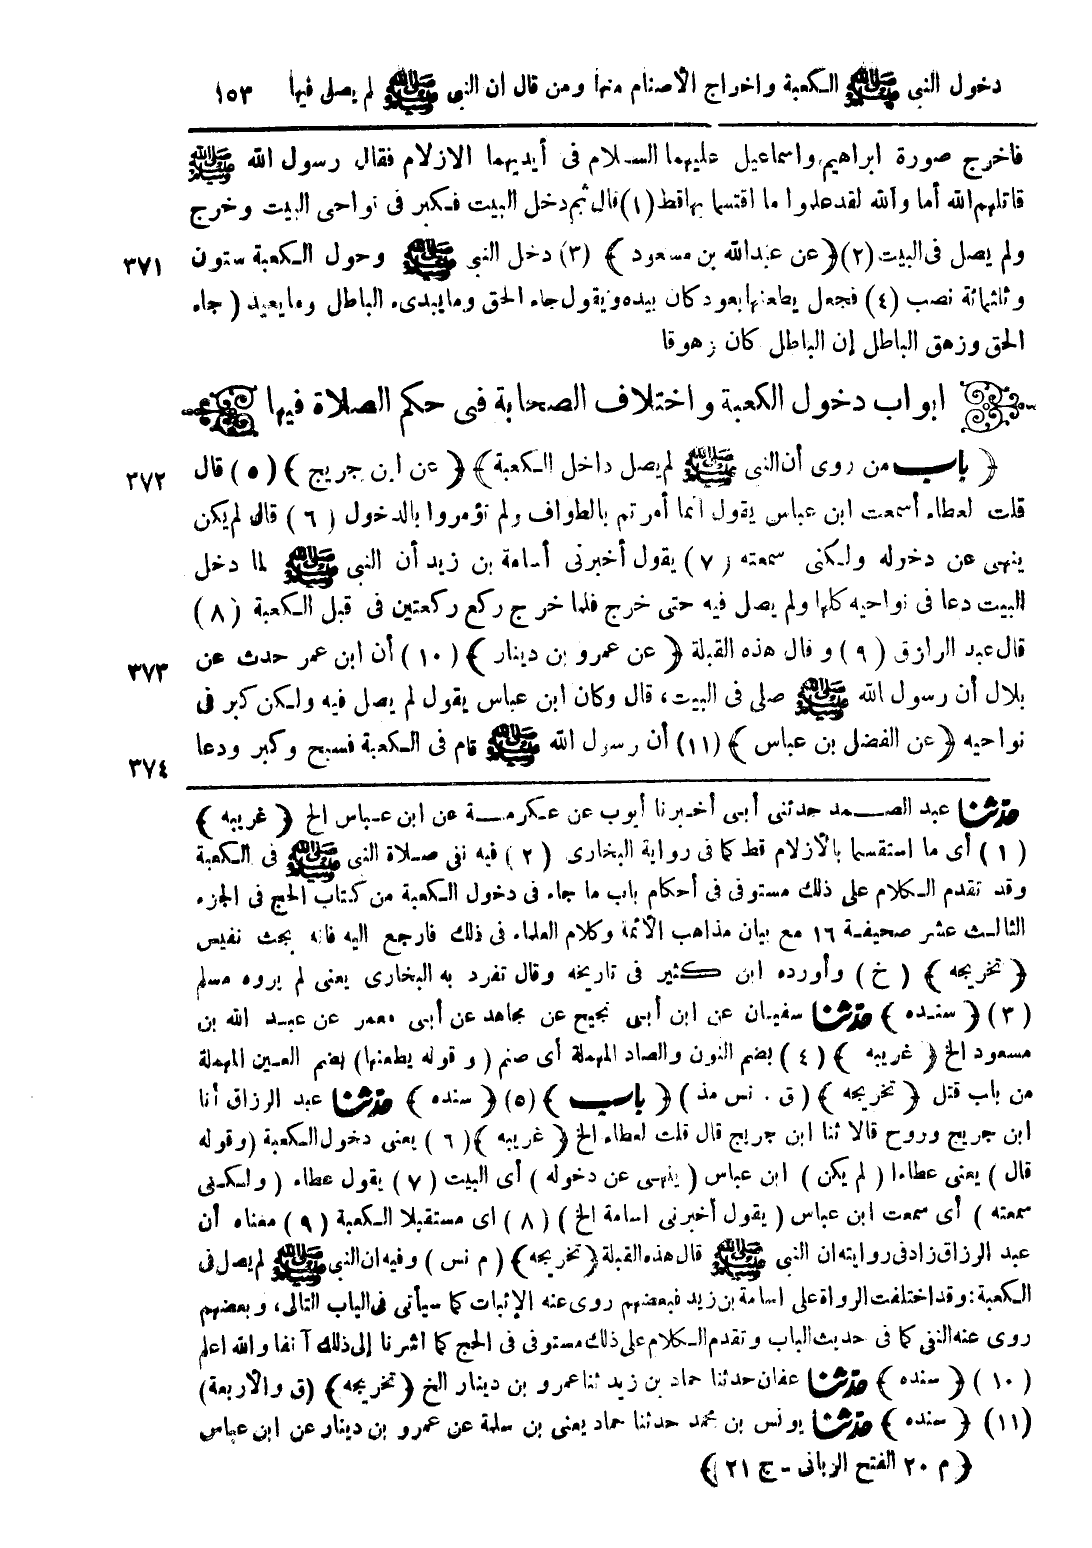 دخول النبي ﷺ الكعبة واخراج الأصنام منها ومن قال ان النبي ﷺ لم يصلى فيها ١٥٣
فاخرج صورة ابراهيم واسماعيل عليهما السلام فى أيديهما الازلام فقال رسول الله ﷺ
قاتلهم الله أما والله لقد علموا ما اقتسما بها قط (١) قال ثم دخل البيت فكبر فى نواحى البيت وخرج
ولم يصل فى البيت (٢) ﴿ عن عبدالله بن مسعود ﴾ (٣) دخل النبي ﷺ وحول الكعبة ستون ٣٧١
وثلثمائة نصب (٤) فجعل يطعنها بعود كان بيده ويقول جاء الحق وما يبدىء الباطل وما يعيد ( جاء
الحق وزهق الباطل إن الباطل كان زهوقا
ابواب دخول الكعبة واختلاف الصحابة فى حكم الصلاة فيها
﴿ باب من روى أن النبى ﷺ لم يصل داخل الكعبة ﴾ ﴿ عن ابن جريج ﴾ (٥) قال ٣٧٢
قلت لعطاء أسمعت ابن عباس يقول انما أمرتم بالطواف ولم تؤمروا بالدخول (٦) قال لم يكن
ينهى عن دخوله ولكنى سمعته (٧) يقول أخبرنى أسامة بن زيد أن النبى ﷺ لما دخل
البيت دعا فى نواحيه كلها ولم يصل فيه حتى خرج فلما خرج ركع ركعتين فى قبل الكعبة (٨)
قال عبد الرازق (٩) وقال هذه القبلة ﴿ عن عمرو بن دينار ﴾ (١٠) أن ابن عمر حدث عن ٣٧٣
بلال أن رسول الله ﷺ صلى فى البيت، قال وكان ابن عباس يقول لم يصل فيه ولكن كبر فى
نواحيه ﴿ عن الفضل بن عباس ﴾ (١١) أن رسول الله ﷺ قام فى الكعبة فسبح وكبر ودعا ٣٧٤
حدثنا عبد الصمد حدثنى أبى أخبرنا أيوب عن عكرمة عن ابن عباس الخ ﴿ غريبه ﴾
(١) أى ما استقسما بالأزلام قط كما فى رواية البخارى (٢) فيه نفى صلاة النبى ﷺ فى الكعبة
وقد تقدم الكلام على ذلك مستوفى فى أحكام باب ما جاء فى دخول الكعبة من كتاب الحج فى الجزء
الثالث عشر صحيفة ١٦ مع بيان مذاهب الأئمة وكلام العلماء فى ذلك فارجع اليه فانه بحث نفيس
﴿ تخريجه ﴾ (خ) وأورده ابن كثير فى تاريخه وقال تفرد به البخارى يعنى لم يروه مسلم
(٣) ﴿ سنده ﴾ حدثنا سفيان عن ابن أبى نجيح عن مجاهد عن أبى معمر عن عبد الله بن
مسعود الخ ﴿ غريبه ﴾ (٤) بضم النون والصاد المهملة أى صنم (وقوله يطعنها) بضم العين المهملة
من باب قتل ﴿ تخريجه ﴾ (ق . نس مذ) ﴿ باب ﴾ (٥) ﴿ سنده ﴾ حدثنا عبد الرزاق أنا
ابن جريج وروح قالا ثنا ابن جريج قال قلت لعطاء الخ ﴿ غريبه ﴾ (٦) يعنى دخول الكعبة (وقوله
قال) يعنى عطاءا (لم يكن) ابن عباس (ينهى عن دخوله) أى البيت (٧) يقول عطاء (ولكنى
سمعته) أى سمعت ابن عباس (يقول أخبرنى اسامة الخ) (٨) اى مستقبلا الكعبة (٩) معناه أن
عبد الرزاق زاد فى روايته ان النبى ﷺ قال هذه القبلة ﴿ تخريجه ﴾ (م نس) وفيه ان النبى ﷺ لم يصل فى
الكعبة: وقد اختلفت الرواة على اسامة بن زيد فبعضهم روى عنه الإثبات كما سيأتى فى الباب التالى، وبعضهم
روى عنه النفى كما فى حديث الباب وتقدم الكلام على ذلك مستوفى فى الحج كما اشرنا إلى ذلك آنفا والله اعلم
(١٠) ﴿ سنده ﴾ حدثنا عفان حدثنا حماد بن زيد ثنا عمرو بن دينار الخ ﴿ تخريجه ﴾ (ق والأربعة)
(١١) ﴿ سنده ﴾ حدثنا يونس بن محمد حدثنا حماد يعنى بن سلمة عن عمرو بن دينار عن ابن عباس
﴿ م ٢٠ الفتح الربانى - ج ٢١ ﴾